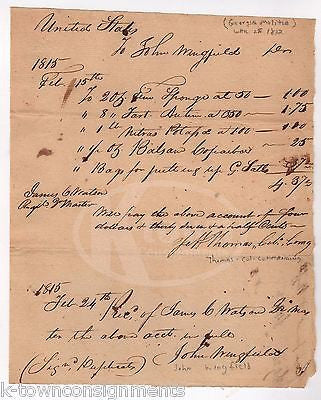 United States
(Georgia Militia)
War of 1812
To John Wingfield Dr
1815
Feb 15th
To 2 oz Fine Sponge at 50 — 1.00
" 8 oz Tart at — 1.75
" 1 oz Nitras Potass a 1.00 — 1.00
" ½ oz Balsam Copaiba — 25
" Bags for putting up G. Salts
4.37½
James C Watson
Regtl Qr Master
pay the above account of four
dollars & thirty seven & a half Cents —
Jett Thomas, Col: Comg
Thomas - Col. commanding
1815
Feb 24th Recd of James C Watson Qr Mas
ter the above acct in full
(Signd Duplicate) John Wingfield
John Wingfield
k-townconsignments
k-townconsignments.com